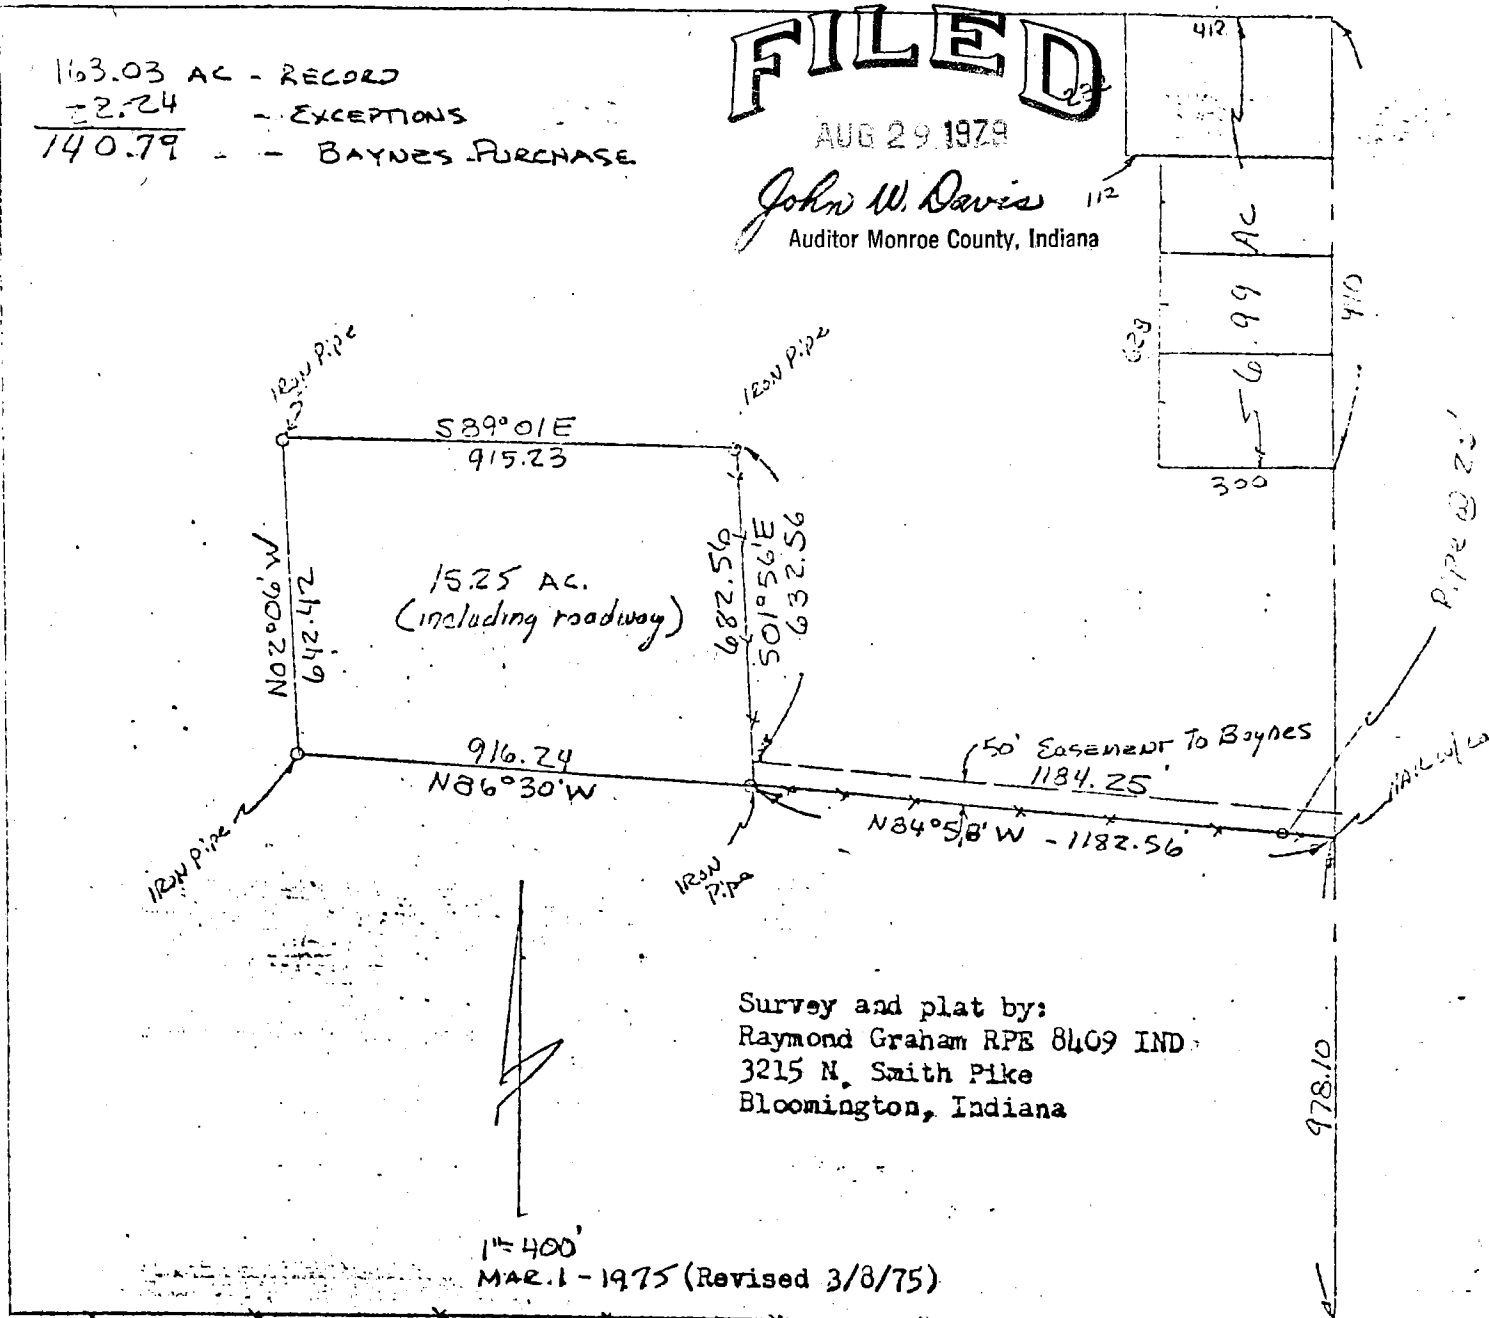 163.03 AC - RECORD
22.24 - EXCEPTIONS
140.79 - - BAYNES PURCHASE
FILED
AUG 29 1979
John W. Davis
Auditor Monroe County, Indiana
412
112
AC
56.99
410
628
300
Pipe @ 25'
IRON Pipe
IRON Pipe
S89°01'E
915.23
N02°06'W
642.42
15.25 AC.
(including roadway)
682.56
S01°56'E
632.56
916.24
N86°30'W
50' Easement To Baynes
1184.25'
N84°58'W - 1182.56'
IRON Pipe
IRON
Pipe
978.10
Survey and plat by:
Raymond Graham RPE 8409 IND
3215 N. Smith Pike
Bloomington, Indiana
1"=400'
MAR. 1 - 1975 (Revised 3/8/75)